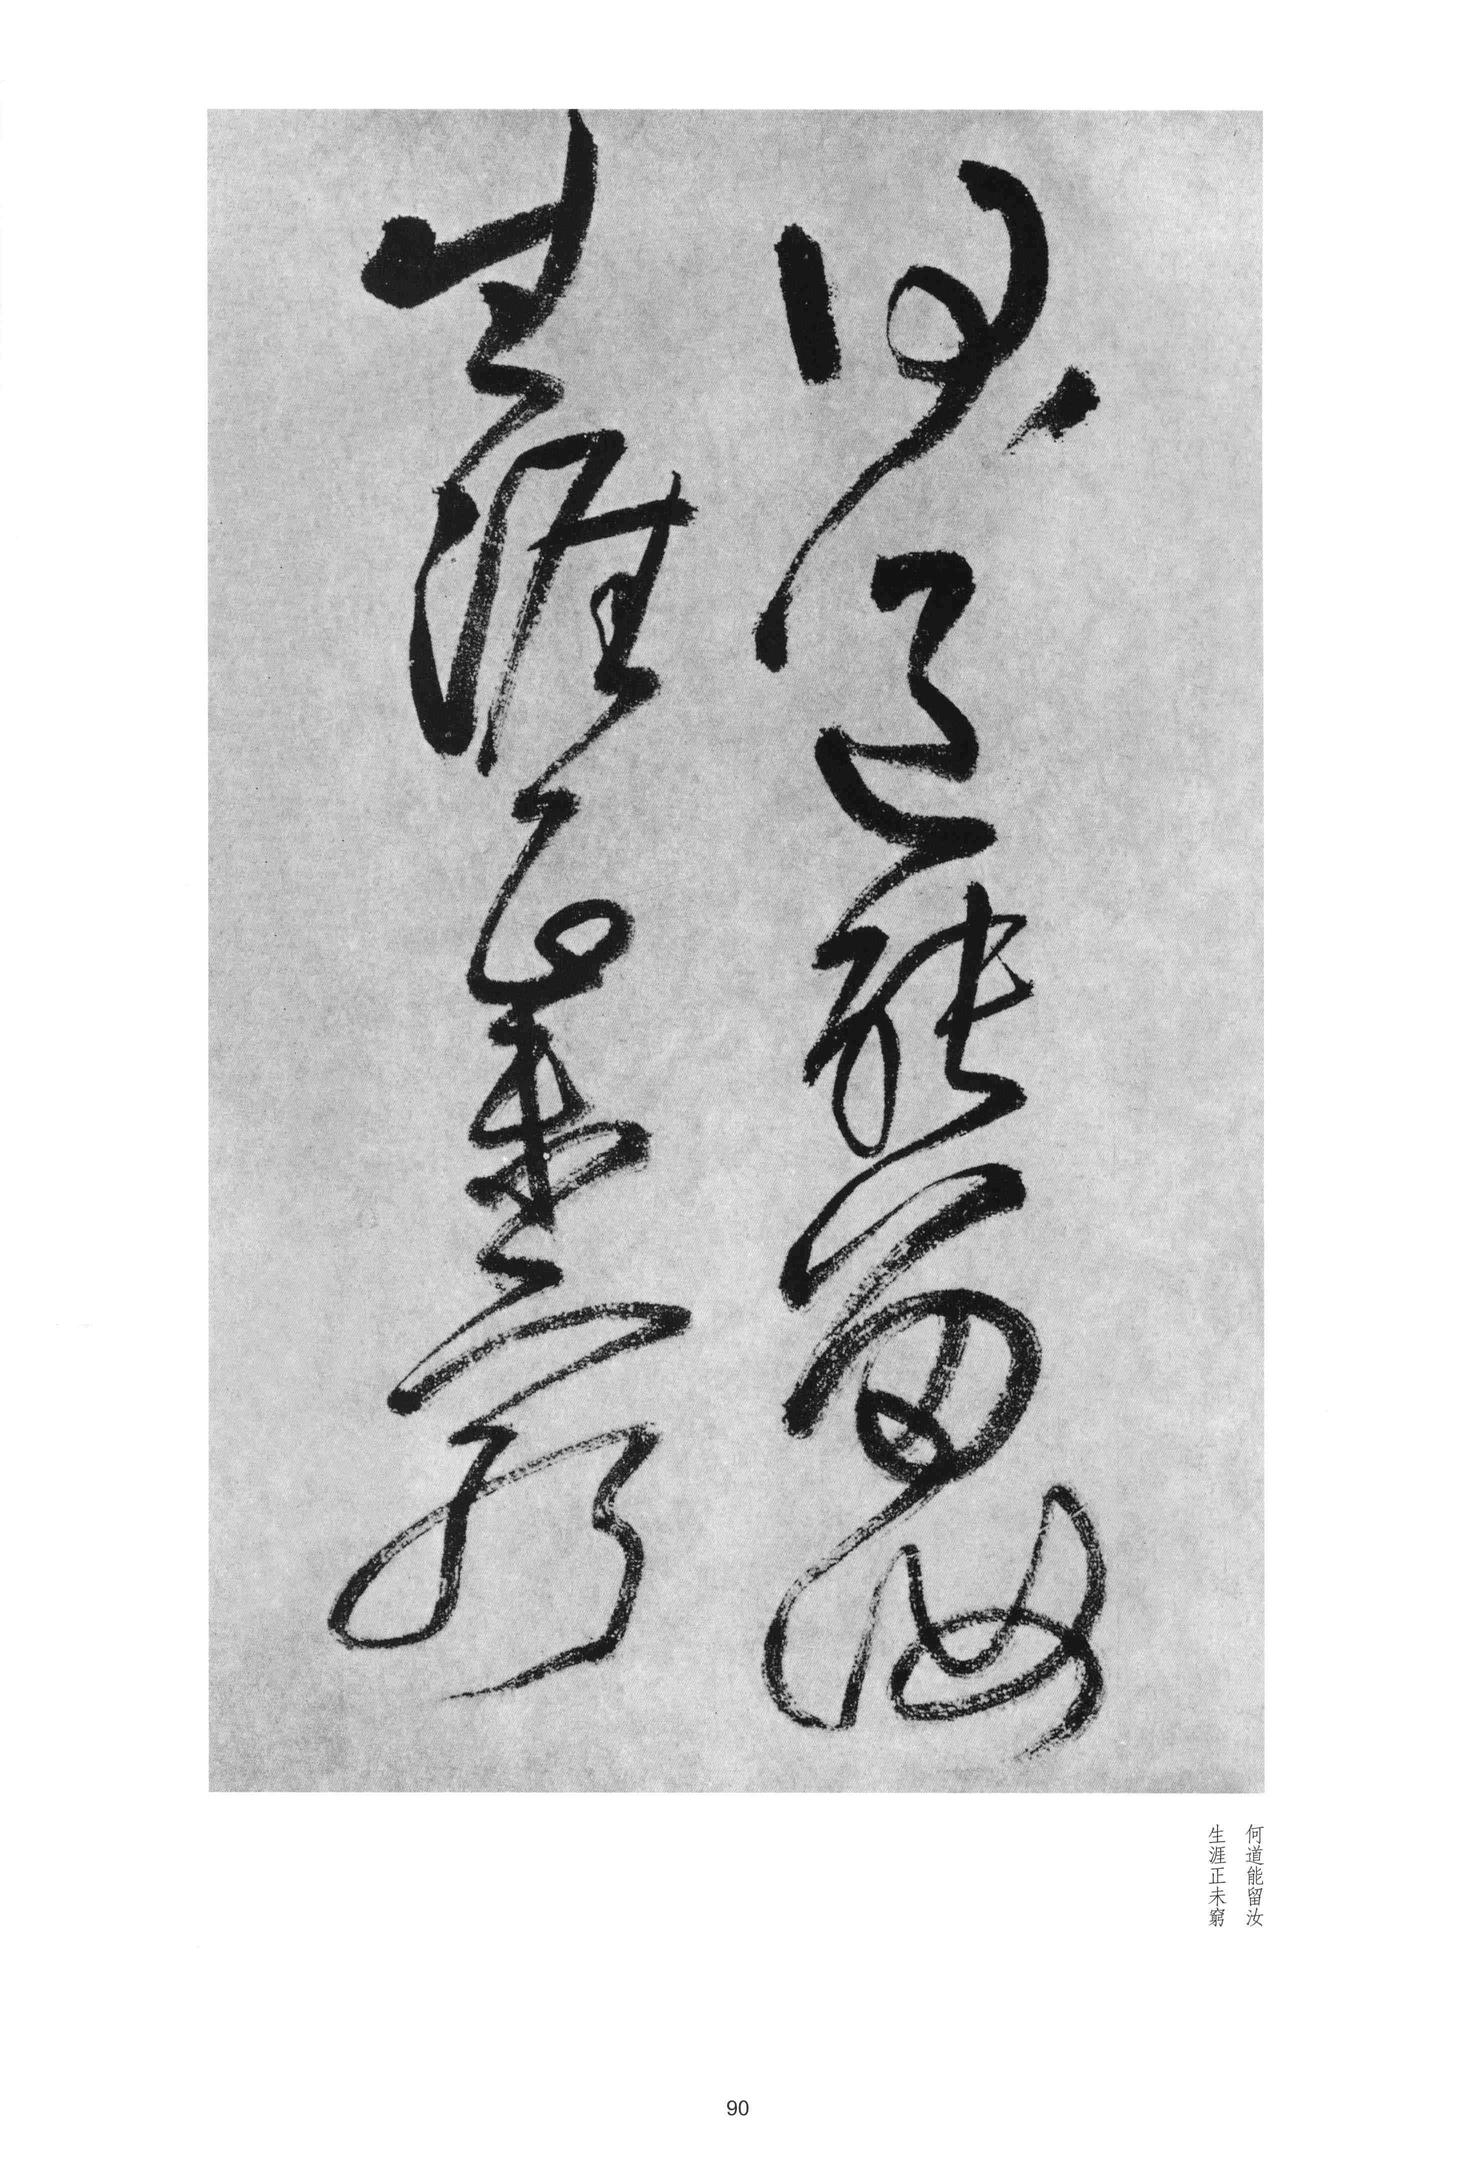 何道能留汝
生涯正未窮
何道能留汝
生涯正未窮
90